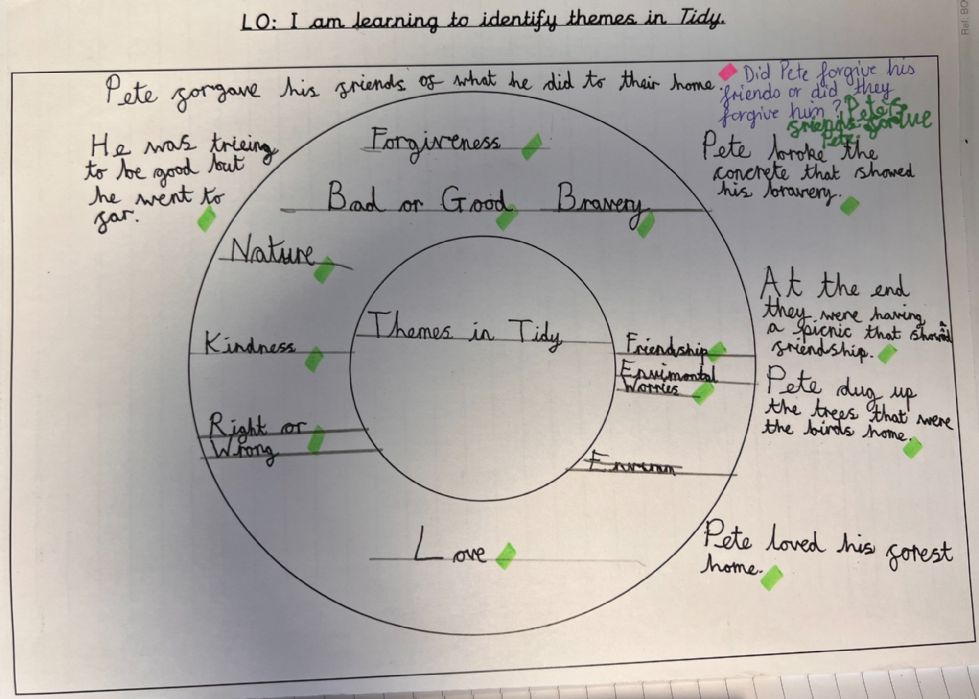 LO: I am learning to identify themes in Tidy.
Pete gorgave his griends og what he did to their home
Did Pete forgive his
friends or did they
forgive him?
Pete's
griends gorgive
Pete.
He was trieing
to be good but
he went to
gar.
Forgiveness
Bad or Good
Bravery
Pete broke the
concrete that showed
his bravery.
Nature
At the end
they were having
a picnic that showd
griendship.
Themes in Tidy
Kindness
Friendship
Envimontal
Worries
Pete dug up
the trees that were
the birds home.
Right or
Wrong
Love
Pete loved his gorest
home.